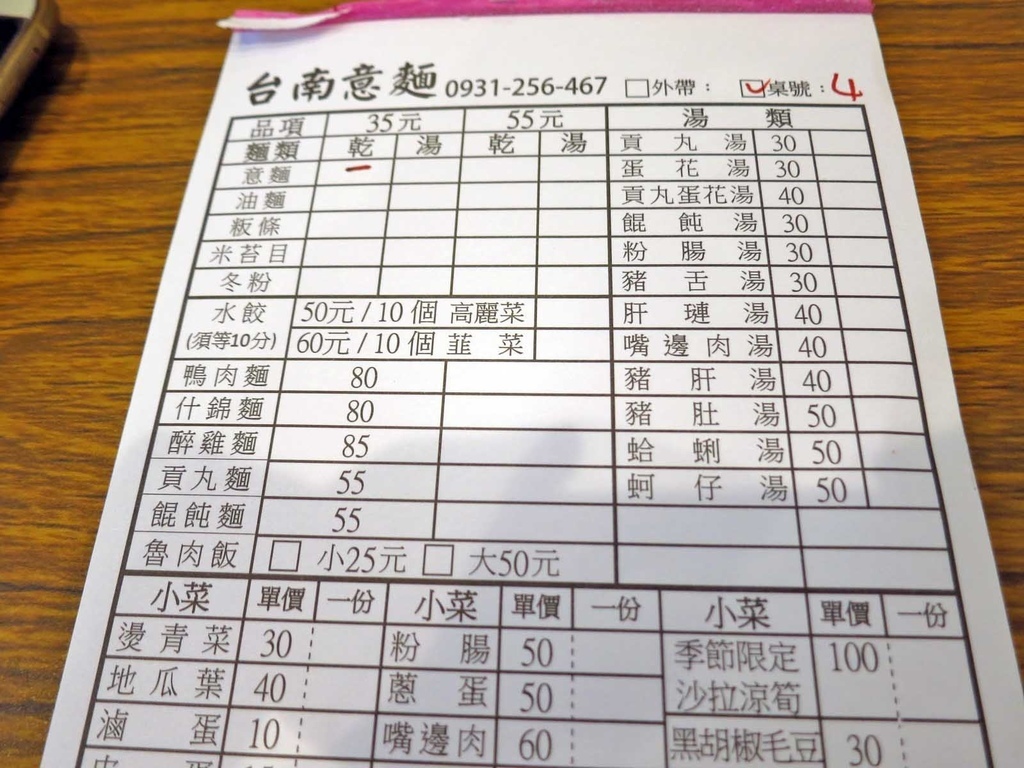 台南意麵 0931-256-467 □外帶： ☑桌號：4
品項 35元 55元 湯類
麵類 乾 湯 乾 湯 貢丸湯 30
意麵 一 蛋花湯 30
油麵 貢丸蛋花湯 40
粄條 餛飩湯 30
米苔目 粉腸湯 30
冬粉 豬舌湯 30
水餃 50元 / 10 個 高麗菜 肝連湯 40
(須等10分) 60元 / 10 個 韮菜 嘴邊肉湯 40
鴨肉麵 80 豬肝湯 40
什錦麵 80 豬肚湯 50
醉雞麵 85 蛤蜊湯 50
貢丸麵 55 蚵仔湯 50
餛飩麵 55
魯肉飯 □ 小25元 □ 大50元
小菜 單價 一份 小菜 單價 一份 小菜 單價 一份
燙青菜 30 粉腸 50 季節限定 100
地瓜葉 40 蔥蛋 50 沙拉涼筍
滷蛋 10 嘴邊肉 60 黑胡椒毛豆 30